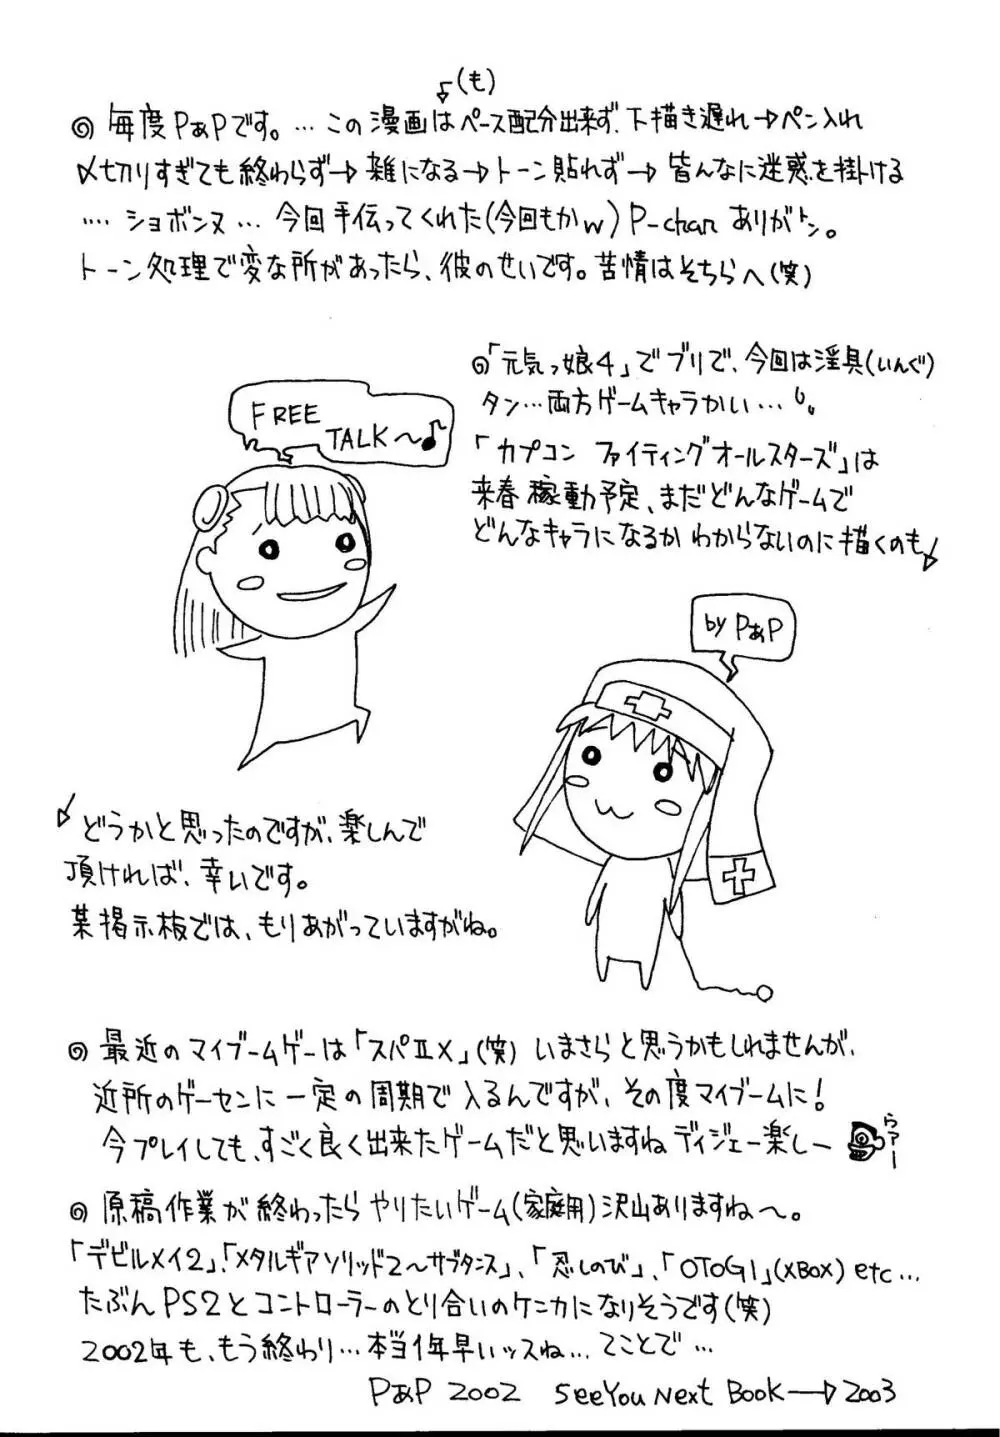 (も)
◎ 毎度PぁPです。… この漫画はペース配分出来ず、下描き遅れ→ペン入れ
〆切りすぎても終わらず→雑になる→トーン貼れず→皆んなに迷惑を掛ける
…. ショボンヌ … 今回手伝ってくれた(今回もかw) P-chan ありがトン。
トーン処理で変な所があったら、彼のせいです。苦情はそちらへ(笑)
FREE
TALK〜♪
◎「元気っ娘4」でブリで、今回は淫具(いんぐ)
タン…両方ゲームキャラかい…
「カプコン ファイティングオールスターズ」は
来春稼動予定、まだどんなゲームで
どんなキャラになるかわからないのに描くのも
by PぁP
どうかと思ったのですが、楽しんで
頂ければ、幸いです。
某掲示板では、もりあがっていますがね。
◎ 最近のマイブームゲーは「スパⅡX」(笑) いまさらと思うかもしれませんが、
近所のゲーセンに一定の周期で入るんですが、その度マイブームに!
今プレイしても、すごく良く出来たゲームだと思いますね ディジェー楽しー
らァー
◎ 原稿作業が終わったらやりたいゲーム(家庭用)沢山ありますね〜。
「デビルメイ2」、「メタルギアソリッド2〜サブタンス」、「忍しのび」、「OTOGI」(XBOX) etc…
たぶんPS2とコントローラーのとり合いのケンカになりそうです(笑)
2002年も、もう終わり…本当1年早いッスね… てことで…
PぁP 2002 See You Next Book→2003